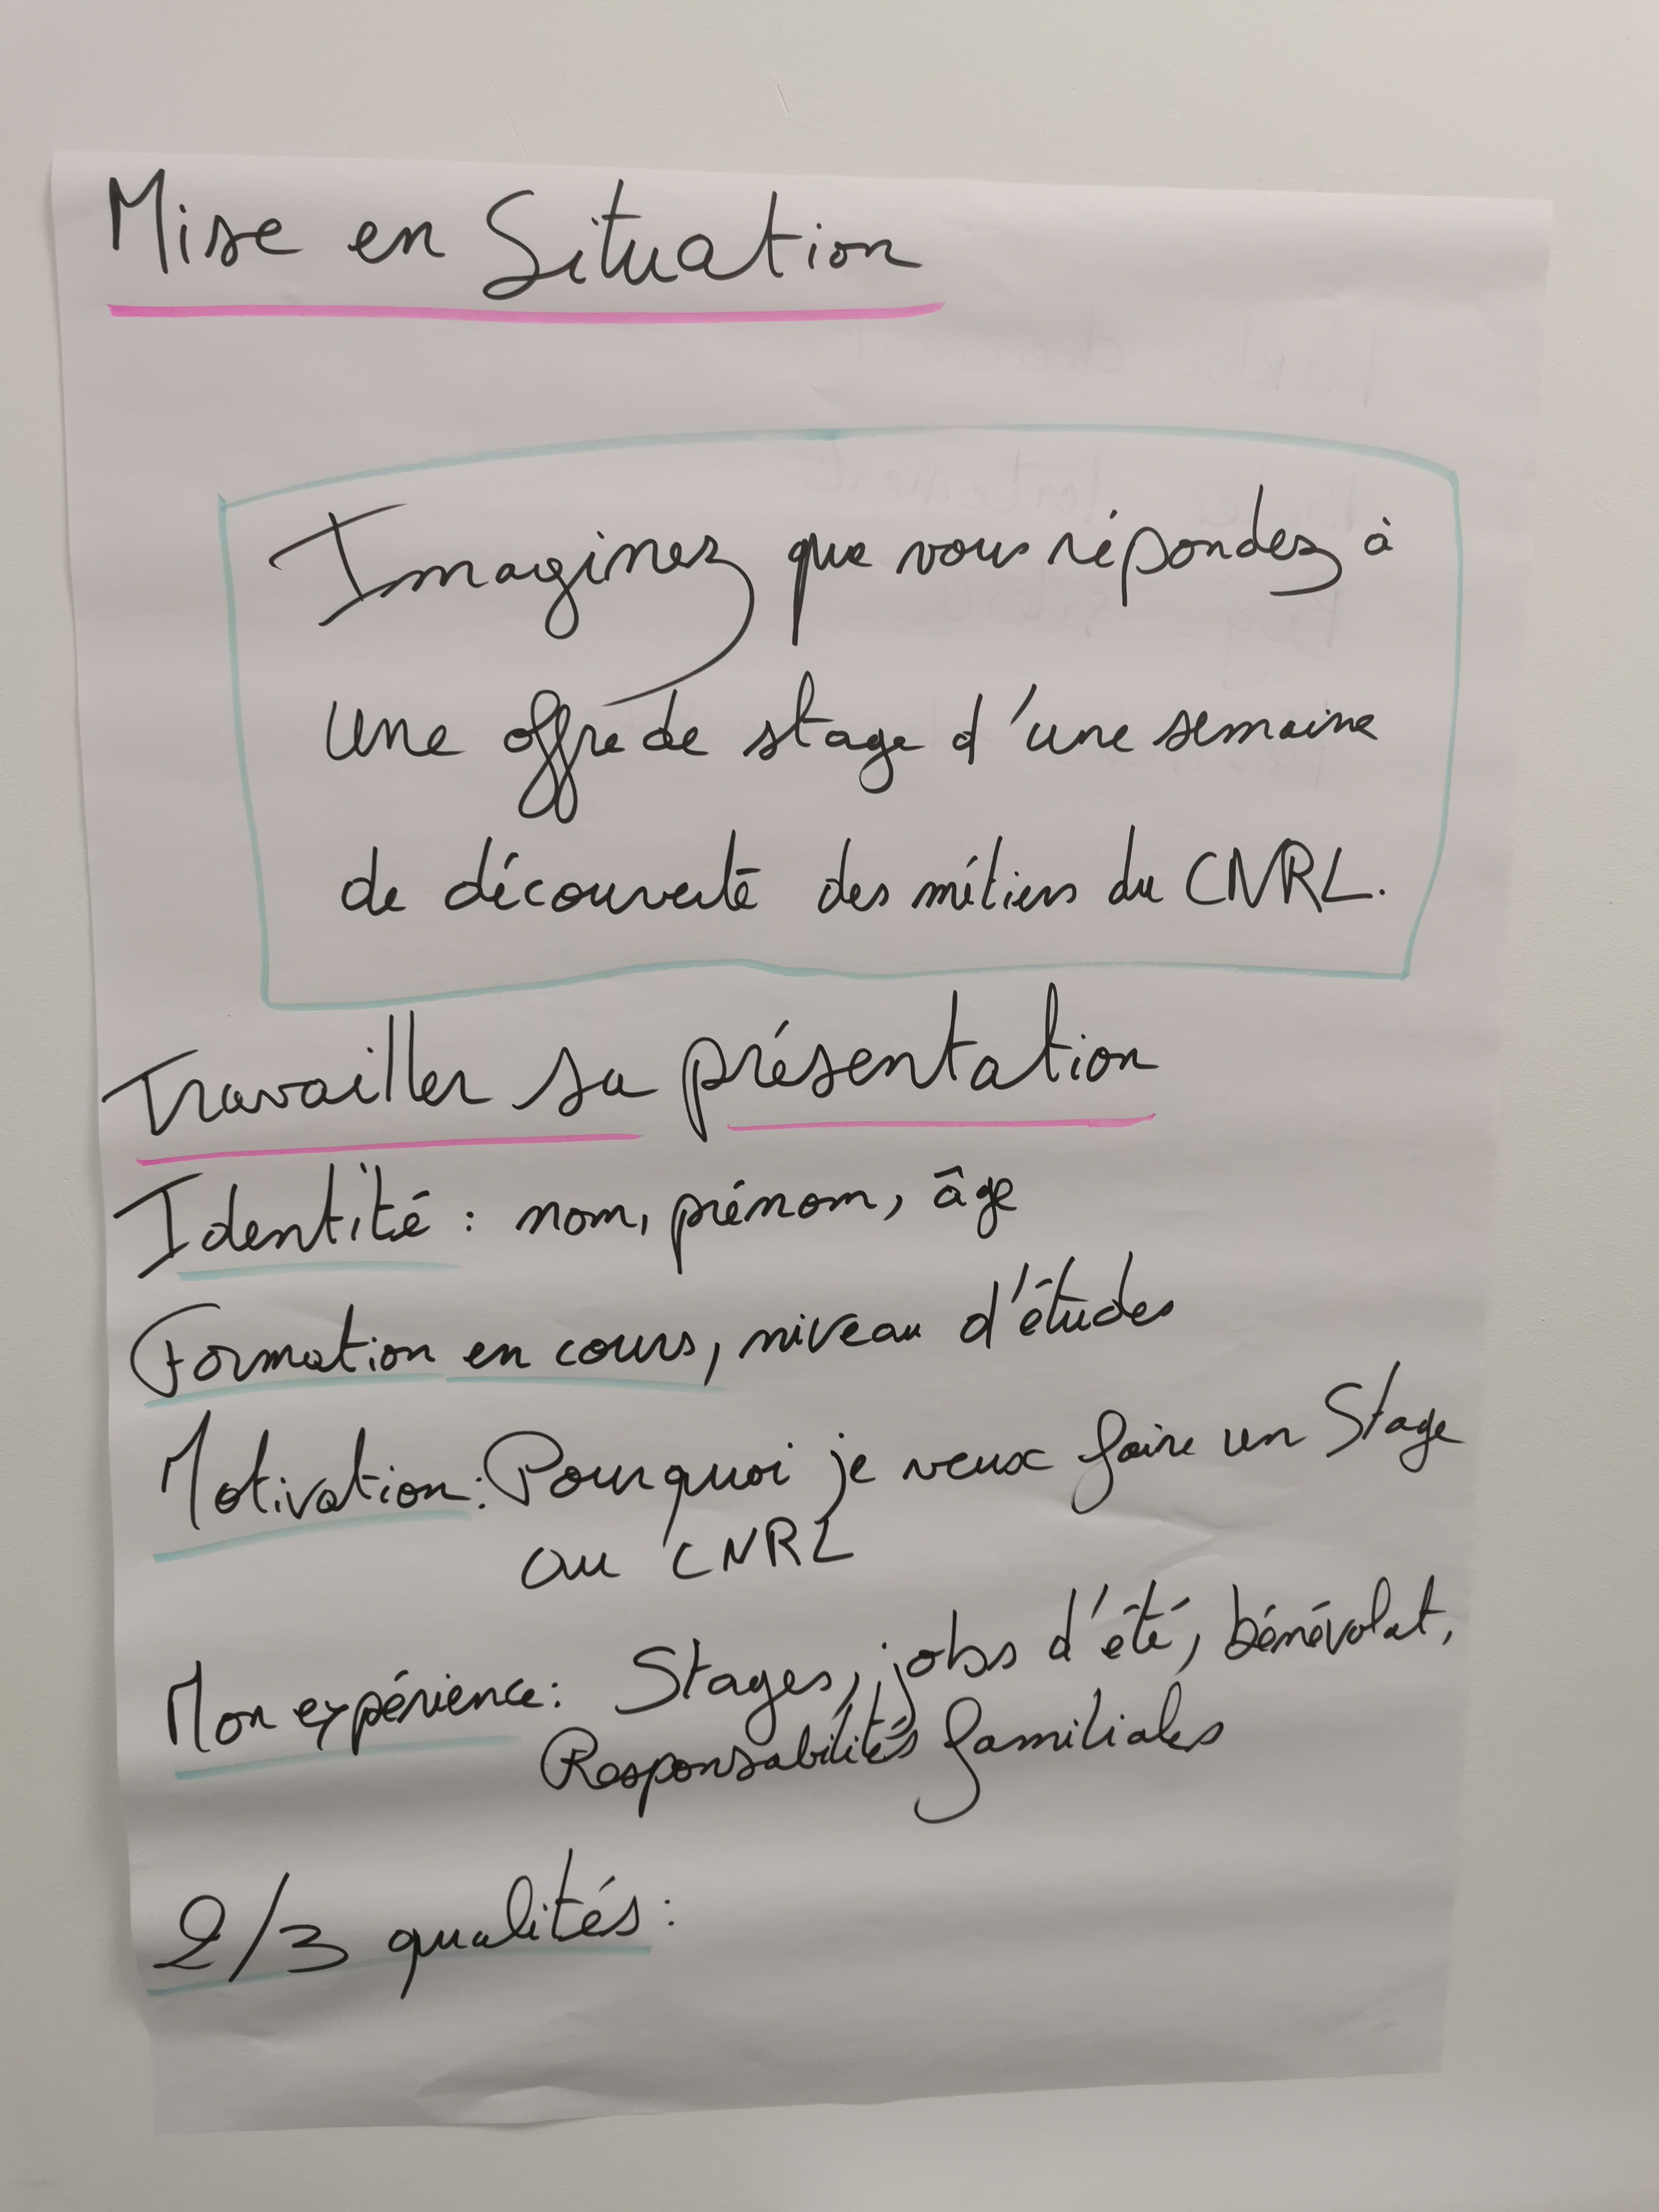 Mise en Situation
Imaginez que vous répondez à
une offre de stage d'une semaine
de découverte des métiers du CNRL.
Travailler sa présentation
Identité : nom, prénom, âge
Formation en cours, niveau d'études
Motivation : Pourquoi je veux faire un Stage
au CNRL
Mon expérience : Stages, jobs d'été, bénévolat,
Responsabilités familiales
2/3 qualités :